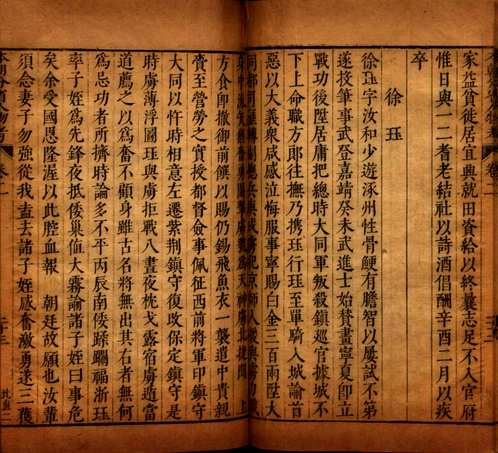 家益貧徙居宜興就田資給以終襄志足不入官府
惟日與一二耆老結社以詩酒倡酬辛酉二月以疾
卒
徐珏
徐珏字汝和少遊涿州性骨鯁有膽智以屢試不第
遂投筆事武登嘉靖癸未武進士始賛畫寧夏卽立
戰功後陞居庸把總時大同軍叛殺鎮廵官據城不
下上命職方郎往撫乃携珏行珏至單騎入城諭首
惡以大義衆咸感泣悔服事寧賜白金三百兩陞大
同都司
方食卽撤御前饌以賜仍錫飛魚衣一襲道中貴親
賫至營勞之實授都督僉事佩征西前將軍印鎮守
大同以忤時相意左遷紫荆鎮守復改鎮守保定是
時虜薄浮圖珏與虜拒戰八晝夜枕戈露宿虜遁當
道薦之以爲奮不顧身雖古名將無出其右者無何
爲忌功者所擠時論多不平丙辰南倭蹂躪福浙珏
率子姪爲先鋒夜抵倭巢值大霧諭諸子姪曰事危
矣余受國恩隆渥以此腔血報 朝廷故願也汝輩
須念妻子勿強從我盍去諸子姪感奮激勇遂三獲
卷二
二十三